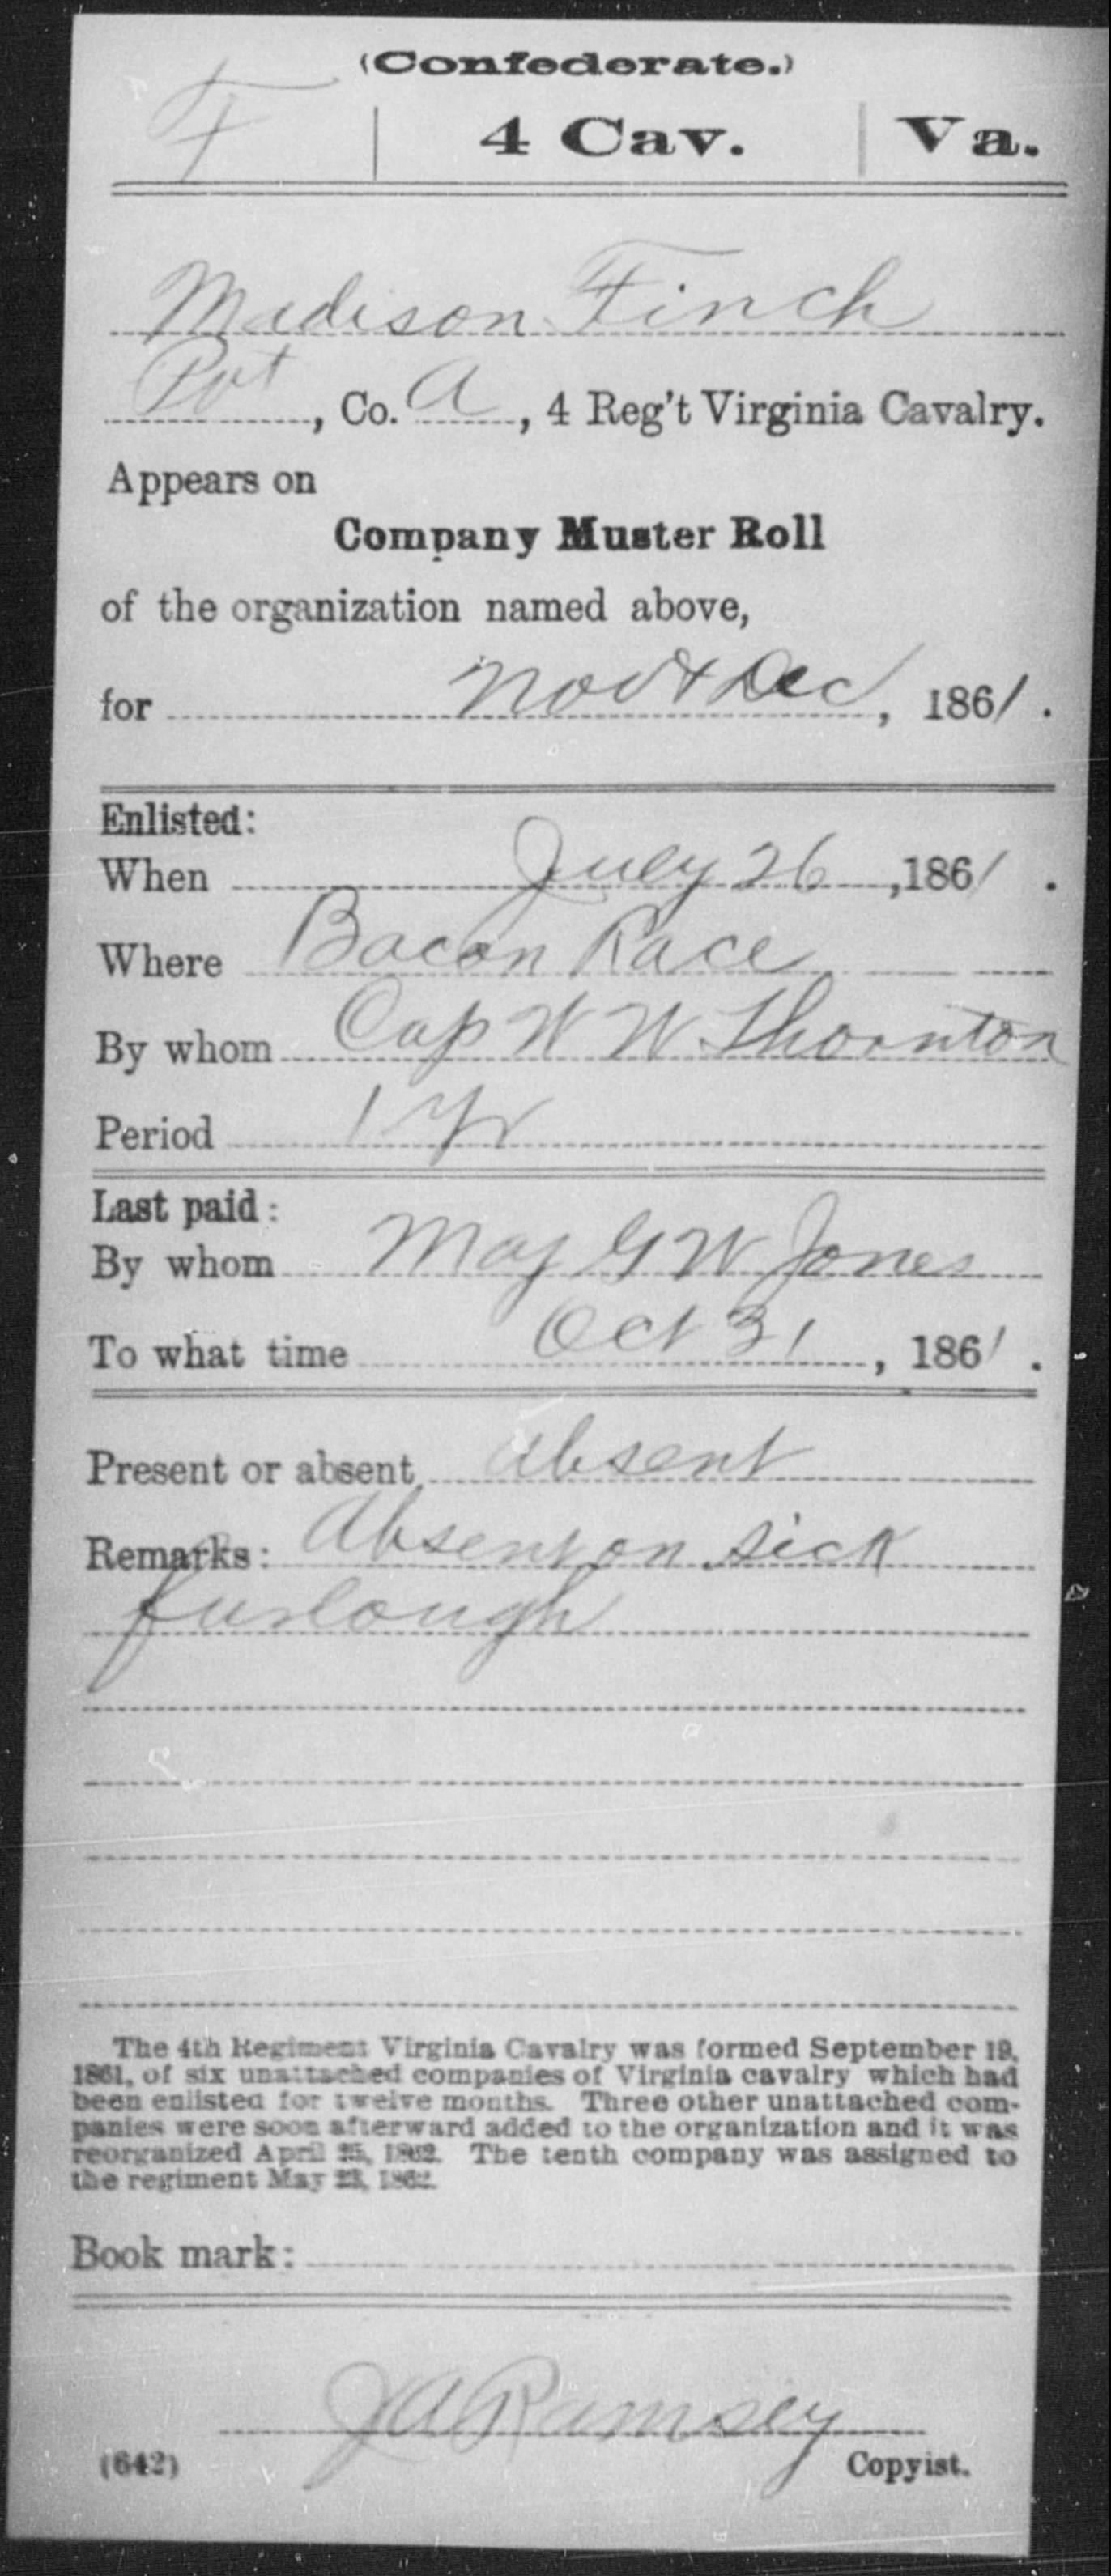 (Confederate.)
F | 4 Cav. | Va.
Madison Finch
Pvt, Co. A, 4 Reg't Virginia Cavalry.
Appears on
Company Muster Roll
of the organization named above,
for Nov & Dec, 1861.
Enlisted:
When July 26, 1861.
Where Bacon Race
By whom Cap W W Thornton
Period 1 yr
Last paid:
By whom Maj G W Jones
To what time Oct 31, 1861.
Present or absent absent
Remarks: Absent on sick
furlough
The 4th Regiment Virginia Cavalry was formed September 19,
1861, of six unattached companies of Virginia cavalry which had
been enlisted for twelve months. Three other unattached com-
panies were soon afterward added to the organization and it was
reorganized April 25, 1862. The tenth company was assigned to
the regiment May 23, 1862.
Book mark:
J A Ramsey
(642) Copyist.